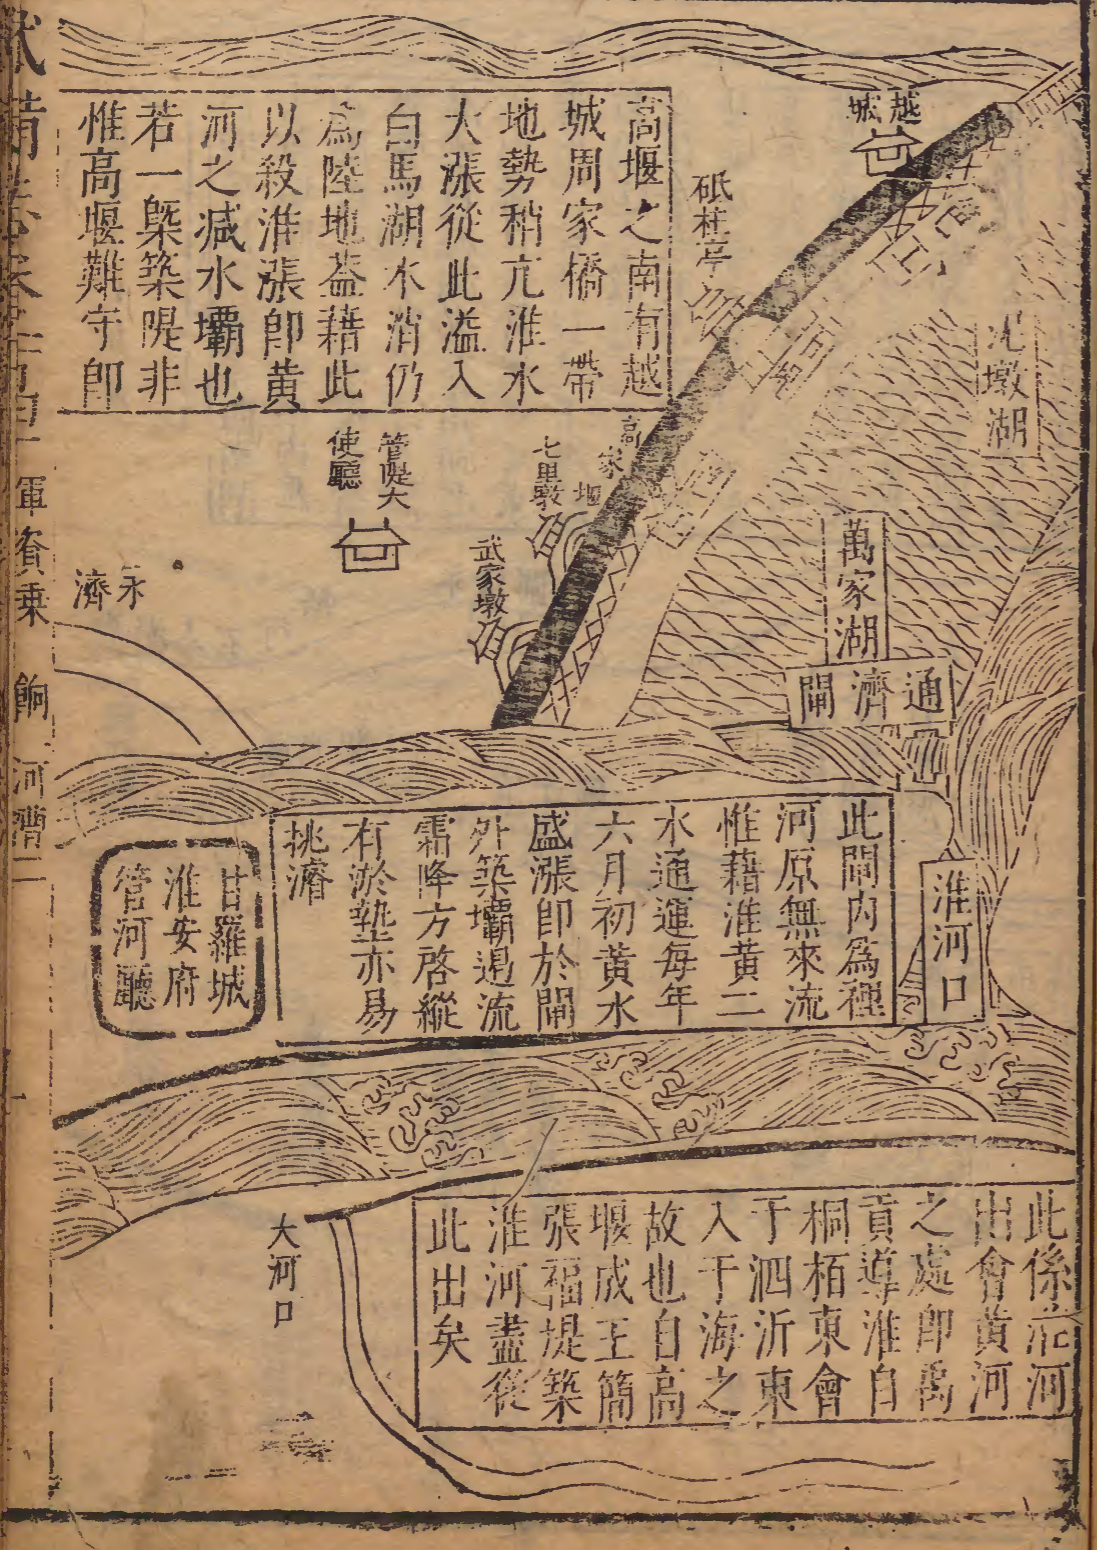 越
城
砥柱亭
高堰之南有越
城周家橋一帶
地勢稍亢淮水
大漲從此溢入
白馬湖水消仍
爲陸地蓋藉此
以殺淮漲卽黃
河之减水壩也
若一槩築隄非
惟高堰難守卽
墩湖
高家堰
七里墩
管隄大
使廳
武家墩
永
濟
萬家湖
通濟閘
此閘內爲裡
河原無來流
惟藉淮黃二
水通運每年
六月初黃水
盛漲卽於閘
外築壩遏流
霜降方啓縱
有淤墊亦易
挑濬
淮河口
甘羅城
淮安府
管河廳
此係淮河
出會黃河
之處卽禹
貢導淮自
桐栢東會
于泗沂東
入于海之
故也自高
堰成王簡
張福堤築
淮河盡從
此出矣
大河口
軍資乘 餉 河漕二